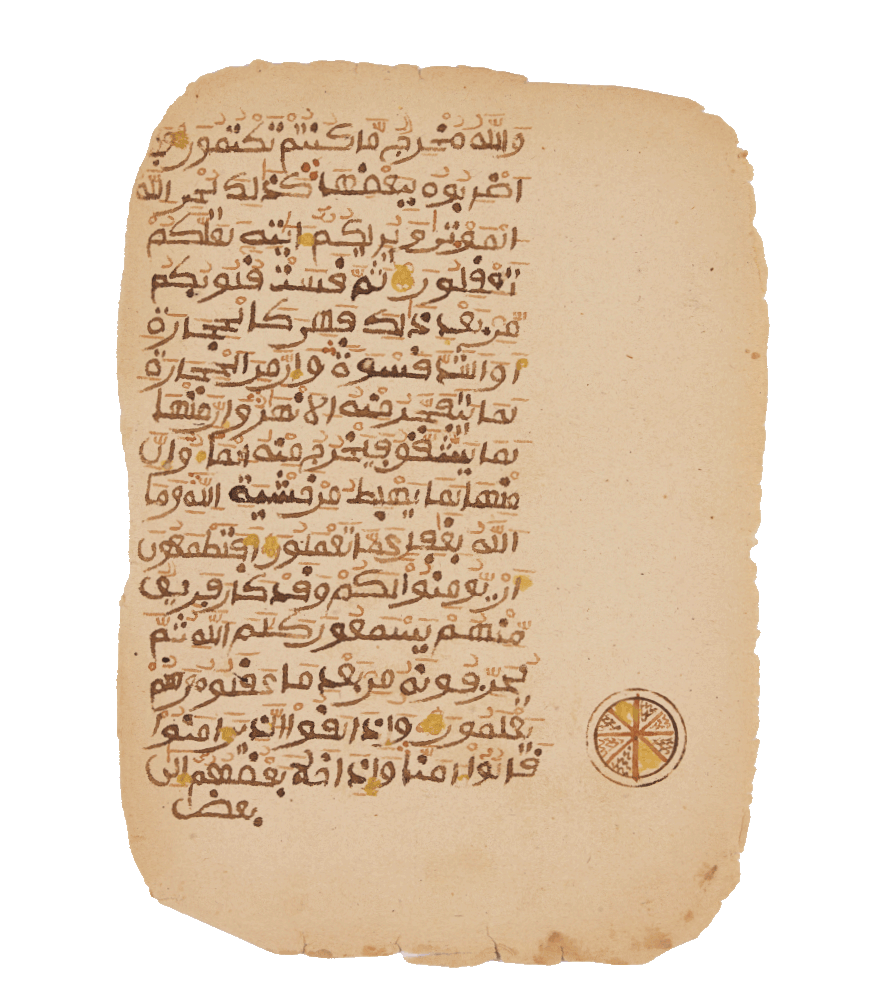 والله مخرج ما كنتم تكتمون
اضربوه ببعضها كذلك يحي الله
الموتى ويريكم ايته لعلكم
تعقلون ثم قست قلوبكم
من بعد ذلك فهي كالحجارة
او اشد قسوة وان من الحجارة
لما يتفجر منه الانهر وان منها
لما يشقق فيخرج منه الما وان
منها لما يهبط من خشية الله وما
الله بغفل عما تعملون افتطمعون
ان يومنوا لكم وقد كان فريق
منهم يسمعون كلم الله ثم
يحرفونه من بعد ما عقلوه وهم
يعلمون واذا لقوا الذين امنوا
قالوا امنا واذا خلا بعضهم الى
بعض